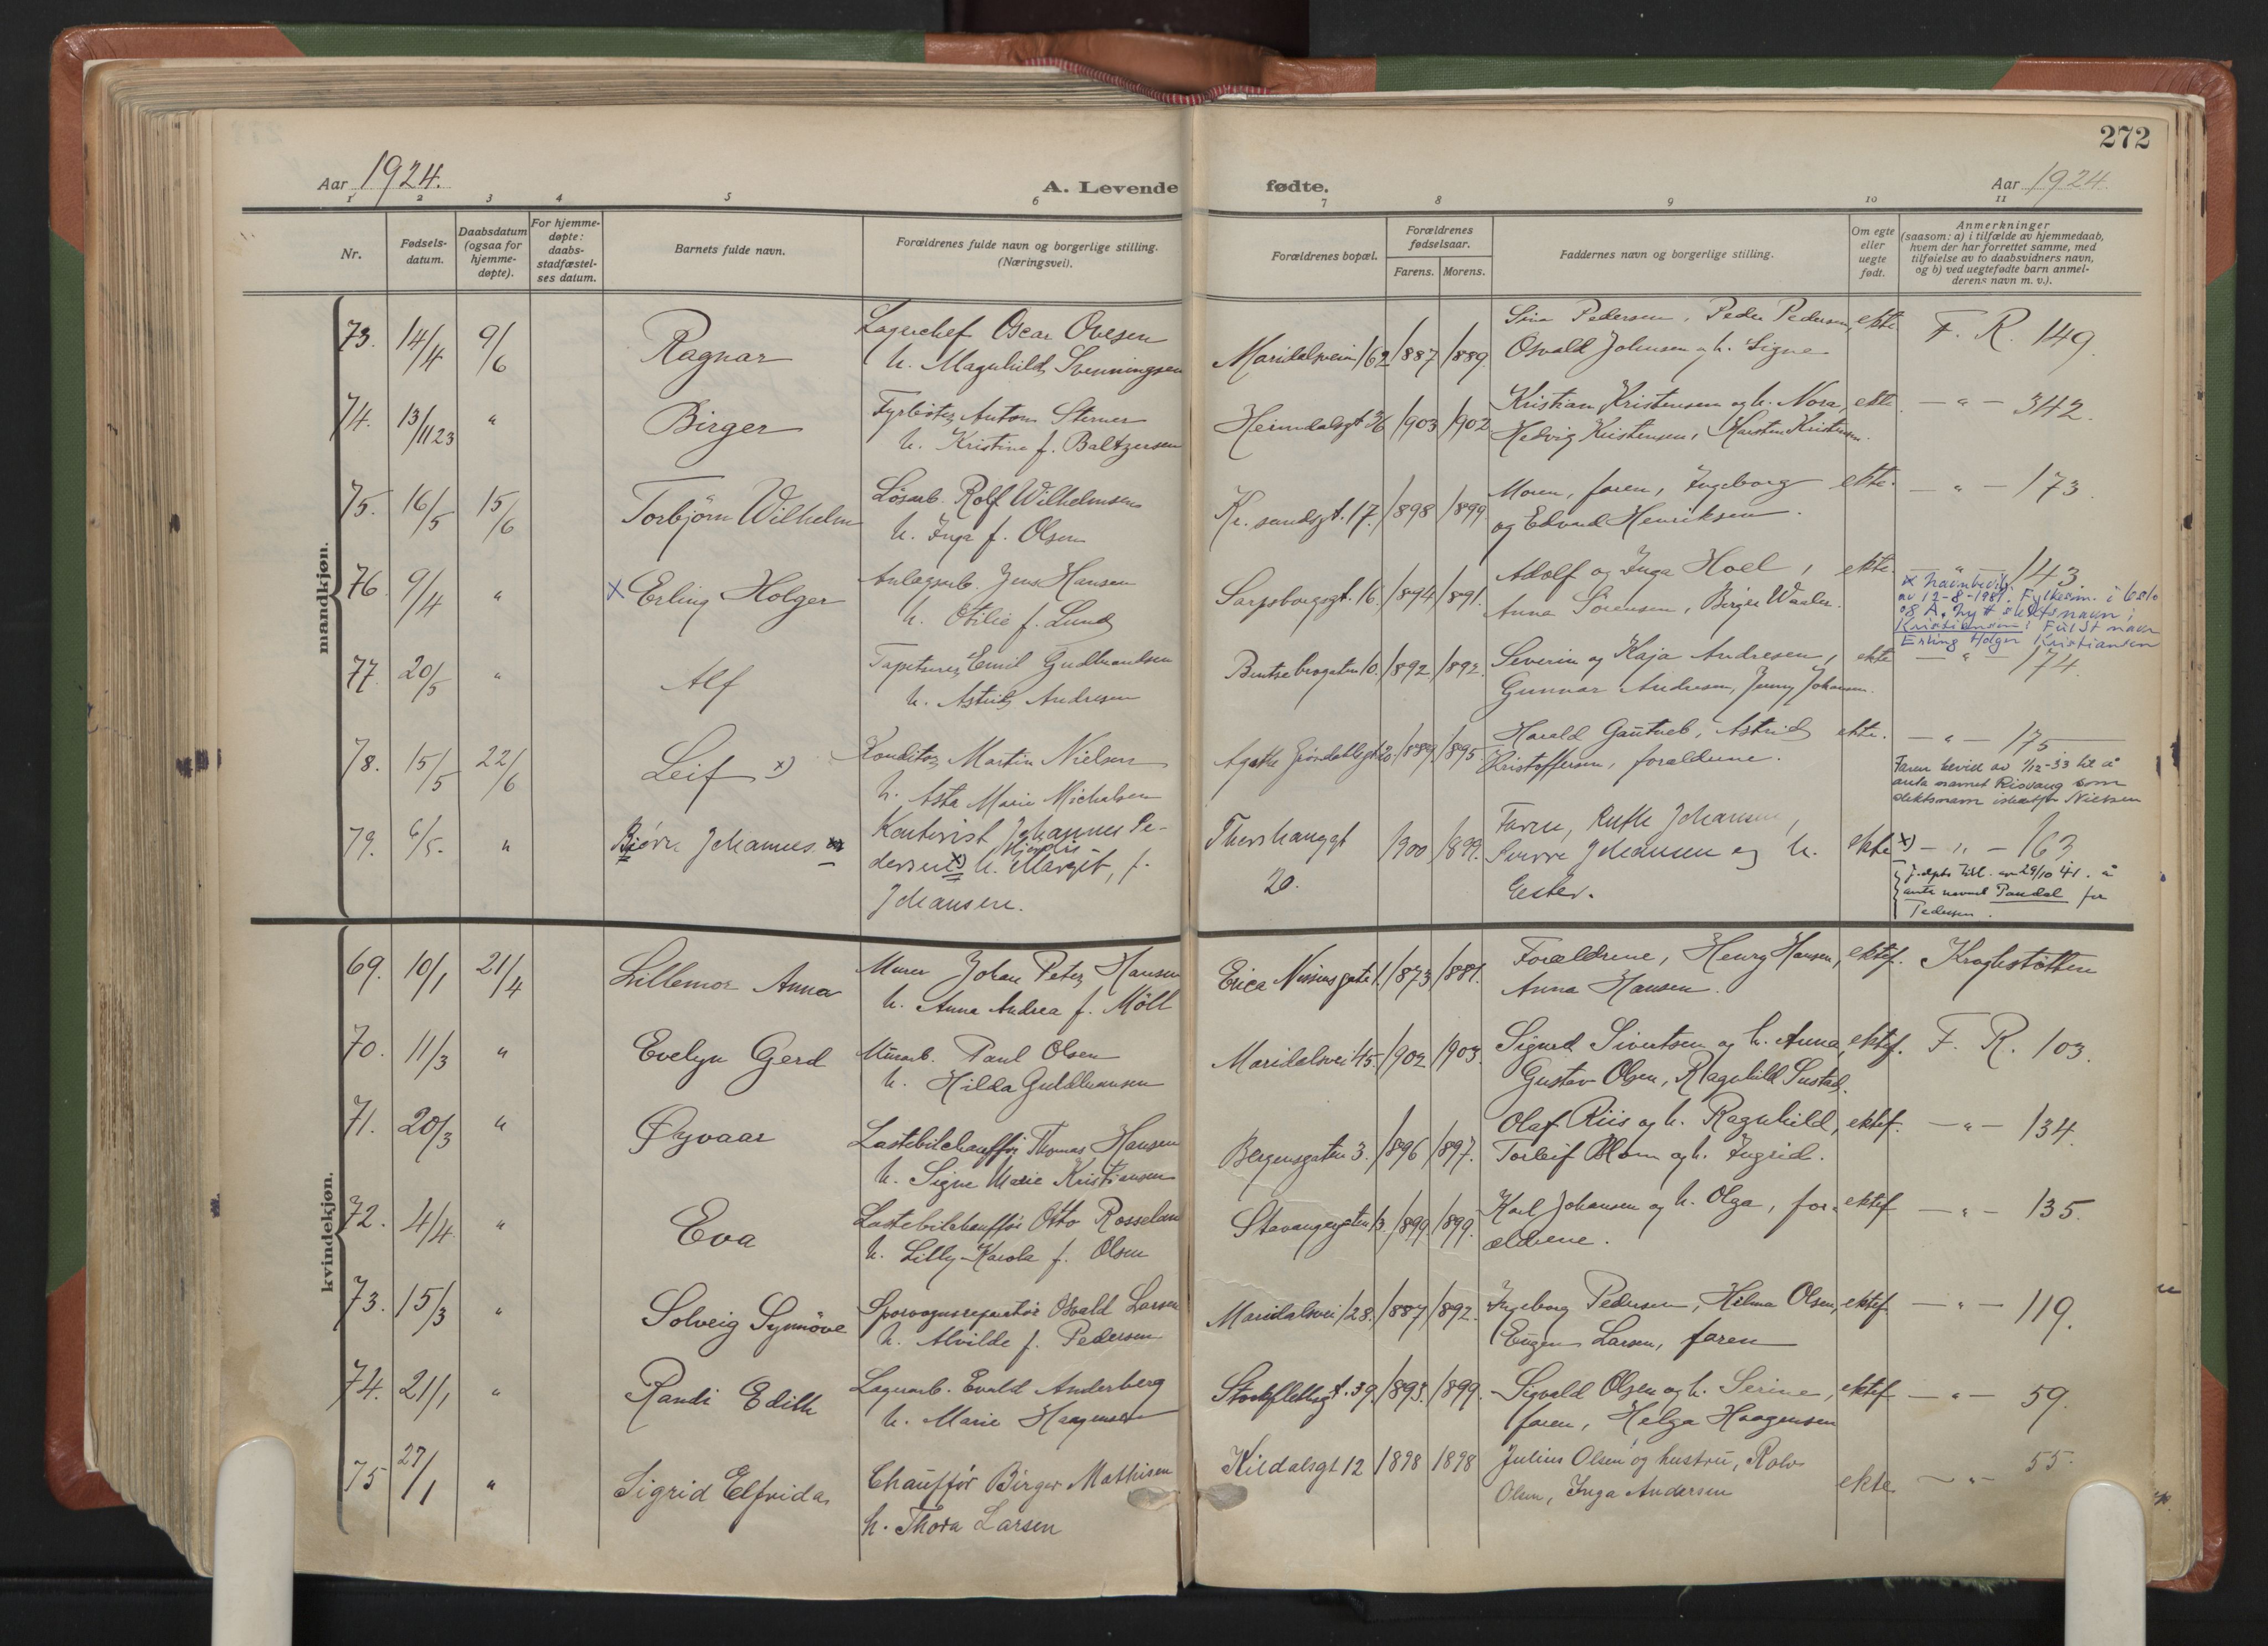 272
Aar 1924.
A. Levende fødte.
Aar 1924.
1 2 3 4 5 6 7 8 9 10 11
Nr.
Fødsels-
datum.
Daabsdatum
(ogsaa for
hjemme-
døpte).
For hjemme-
døpte:
daabs-
stadfæstel-
ses datum.
Barnets fulde navn.
Forældrenes fulde navn og borgerlige stilling.
(Næringsvei).
Forældrenes bopæl.
Forældrenes
fødselsaar.
Farens. Morens.
Faddernes navn og borgerlige stilling.
Om egte
eller
uegte
født.
Anmerkninger
(saasom: a) i tilfælde av hjemmedaab,
hvem der har forrettet samme, med
tilføielse av to daabsvidners navn,
og b) ved uegtefødte barn anmel-
derens navn m. v.).
mandkjøn.
73. 14/4 9/6 Ragnar
Lagerchef Oscar Ovesen
h. Magnhild Svenningsen
Maridalsvein 162 1887 1889
Sina Pedersen, Peder Pedersen,
Osvald Johnsen og h. Signe
ekte F. R. 149.
74. 13/11 23 " Birger
Fyrbøter Anton Sterner
h. Kristine f. Baltzersen
Heimdalsgt 1903 1902.
Kristian Kristensen og h. Nora,
Hedvig Kristensen, Karsten Kristensen.
ekte — " — 342.
75. 16/5 15/6 Torbjörn Wilhelm
Løsarb. Rolf Wilhelmsen
h. Inga f. Olsen
Kr.sandsgt. 17. 1898 1899
Moren, faren, Ingeborg
og Edvard Henriksen.
ekte. — " — 173.
76. 9/4 " x Erling Holger
Anlægsarb. Jens Hansen
h. Otilie f. Lund
Sarpsborgsgt. 16. 1894 1891.
Adolf og Inga Hoel,
Anna Sørensen, Birger Waaler.
ekte. — " — 143.
x Navnbevilg.
av 12-8-1981. Fylkesm. i Oslo
og A. Nytt slektsnavn;
Kristiansen; Fullt navn
Erling Holger Kristiansen
77. 20/5 " Alf
Tapetserer Emil Gudbrandsen
h. Astrid Andresen
Bentsebrogaten 10. 1892 1892.
Severin og Kaja Andresen,
Gunnar Andresen, Jenny Johansen.
ekte — " — 174.
78. 15/5 22/6 Leif x)
Konditor Martin Nielsen
h. Asta Marie Michalsen
Agathe Grøndahlsgt 20. 1889. 1895.
Harald Gautneb, Astrid
Kristoffersen, forældrene.
ekte. — " — 175
Faren bevild av 1/12-33 til å
anta navnet Risvang som
slektsnavn istedetfor Nielsen
79. 6/5. " Bjørn Johannes. x)
Kontorist Johannes Pe-
Hjørdis
dersen x) h. Margit, f.
Johansen.
Thorshauggt
20.
1900 1899.
Faren, Ruth Johansen,
Sverre Johansen og h.
Ester.
ekte x) — " — 163
J.dpts till. av 29/10 41. å
anta navnet Pandal for
Pedersen.
kvindekjøn.
69. 10/1 21/4 Lillemor Anna
Murer Johan Peter Hansen
h. Anna Andrea f. Möll
Erica Nissensgate 1. 1873 1881.
Forældrene, Henry Hansen,
Anna Hansen.
ektef. Kroghstötten
70. 11/3 " Evelyn Gerd
Murarb. Paul Olsen
h. Hilda Guldbransen
Maridalsvei 45. 1902 1903.
Sigurd Sivertsen og h. Anna,
Gustav Olsen, Ragnhild Sustad.
ektef. F. R. 103.
71. 20/3 " Öyvaar
Lastebilchauffør Thomas Hansen
h. Signe Marie Kristiansen
Bergensgaten 3. 1896 1897.
Olaf Riis og h. Ragnhild,
Torleif Blom og h. Ingrid.
ektef. — " — 134.
72. 4/4 " Eva
Lastebilchauffør Otto Rosselan
h. Lilly-Karola f. Olsen
Stavangergaten 13. 1899 1899.
Karl Johansen og h. Olga, for-
ældrene.
ektef — " — 135.
73. 15/3 " Solveig Synnöve
Sporvognsreparatør Osvald Larsen
h. Alvilde f. Pedersen
Maridalsvei 128. 1887 1892.
Ingeborg Pedersen, Hilma Olsen,
Eugen Larsen, faren
ektef. — " — 119.
74. 21/1 " Randi Edith
Lagerarb. Evald Anderberg
h. Marie Haagensen
Stockflethsgt. 39. 1893. 1899.
Sigvald Olsen og h. Serine,
faren, Helga Haagensen
ektef — " — 59.
75 27/1 " Sigrid Elfrida
Chauffør Birger Mathisen
h. Thora Larsen
Kildalsgt 12 1898 1898
Julius Olsen og hustru, Rolv
Olsen, Inga Andersen
ekte — " — 55.